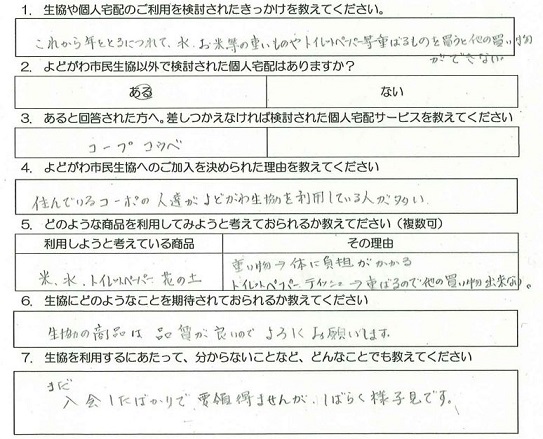 1. 生協や個人宅配のご利用を検討されたきっかけを教えてください。
これから年をとるにつれて、水、お米等の重いものやトイレットペーパー等重ばるものを買うと他の買い物
ができない
2. よどがわ市民生協以外で検討された個人宅配はありますか?
ある ない
3. あると回答された方へ。差しつかえなければ検討された個人宅配サービスを教えてください
コープ コウベ
4. よどがわ市民生協へのご加入を決められた理由を教えてください
住んでいるコーポの人達がよどがわ生協を利用している人が多い
5. どのような商品を利用してみようと考えておられるか教えてださい(複数可)
利用しようと考えている商品 その理由
重い物→体に負担がかかる
米、水、トイレットペーパー 花の土 トイレットペーパー ティッシュ→重ばるので他の買い物出来ない。
6. 生協にどのようなことを期待されておられるか教えてください
生協の商品は品質が良いのでよろしくお願いします。
7. 生協を利用するにあたって、分からないことなど、どんなことでも教えてください
まだ
入会したばかりで要領得ませんが、しばらく様子見です。